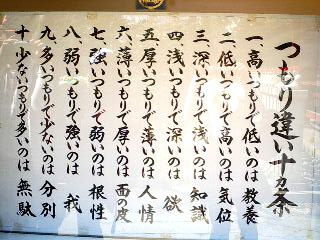 つもり違い十カ条
一、高いつもりで低いのは 教養
二、低いつもりで高いのは 気位
三、深いつもりで浅いのは 知識
四、浅いつもりで深いのは 欲
五、厚いつもりで薄いのは 人情
六、薄いつもりで厚いのは 面の皮
七、強いつもりで弱いのは 根性
八、弱いつもりで強いのは 我
九、多いつもりで少ないのは 分別
十、少ないつもりで多いのは 無駄